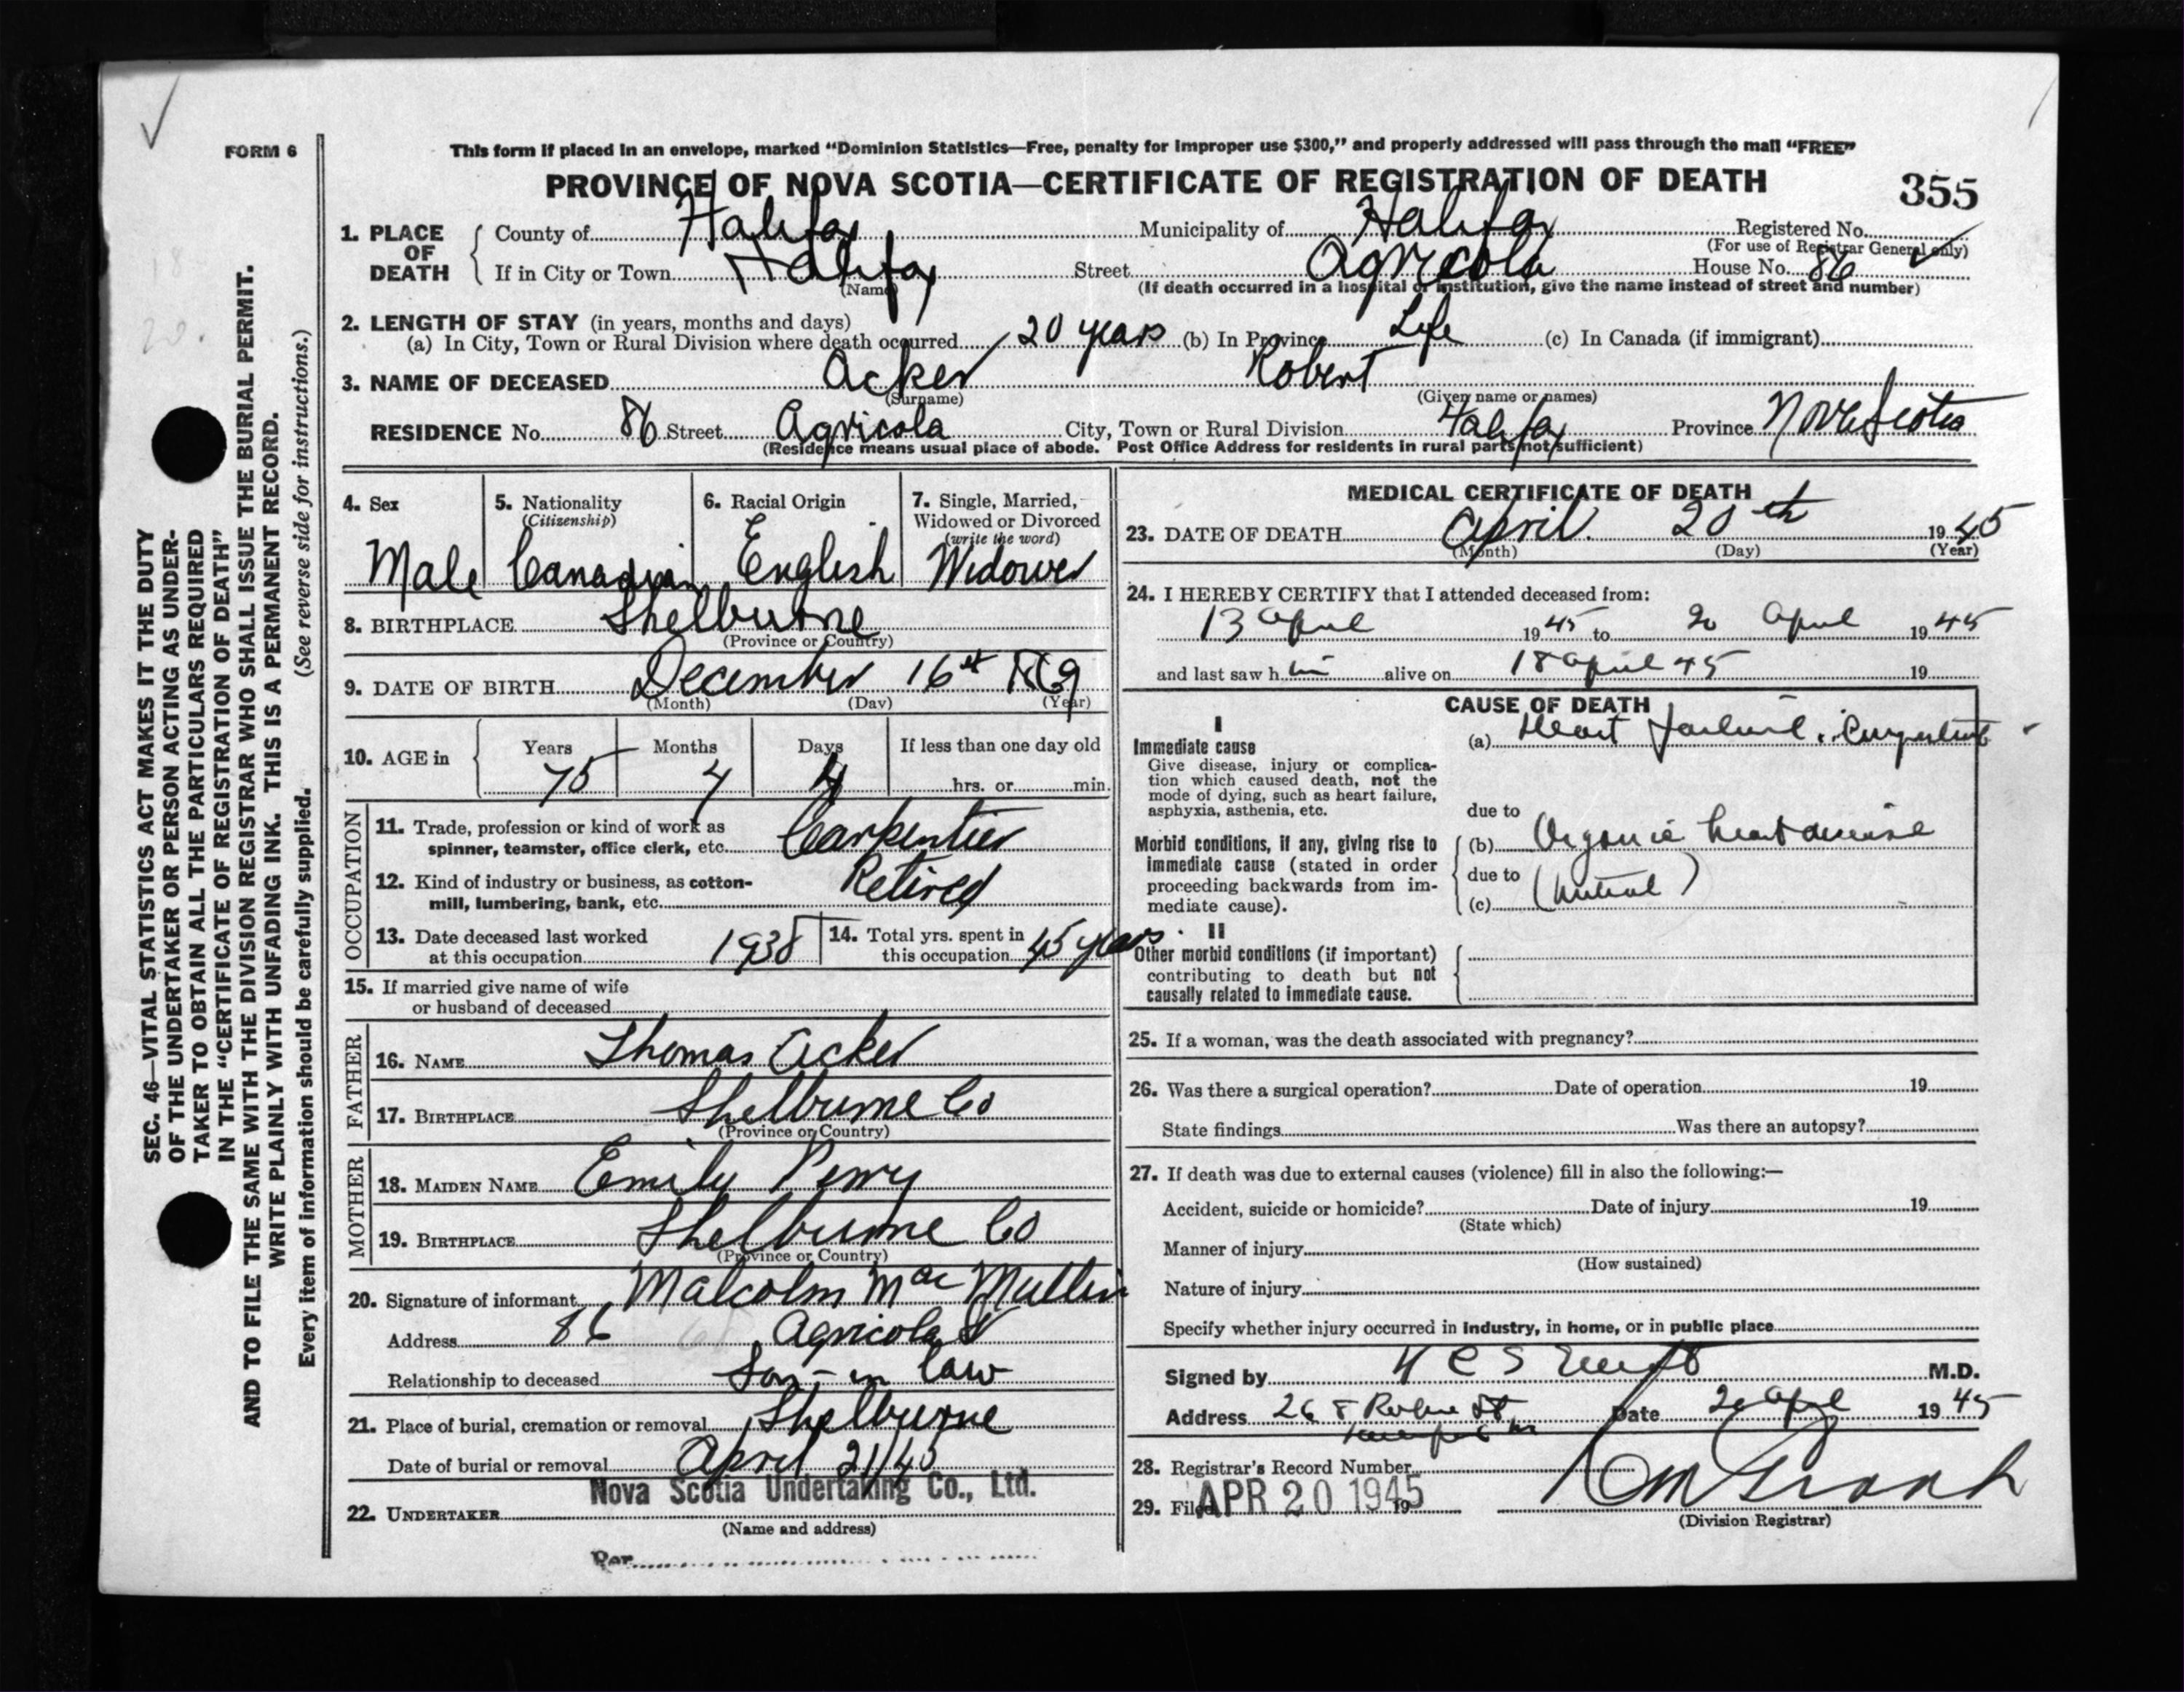 FORM 6
This form if placed in an envelope, marked “Dominion Statistics—Free, penalty for improper use $300,” and properly addressed will pass through the mail “FREE”
PROVINCE OF NOVA SCOTIA—CERTIFICATE OF REGISTRATION OF DEATH
355
1. PLACE OF DEATH County of Halifax Municipality of Halifax Registered No.
(For use of Registrar General only)
If in City or Town Halifax Street Agricola House No. 86
(Name) (If death occurred in a hospital or institution, give the name instead of street and number)
2. LENGTH OF STAY (in years, months and days)
(a) In City, Town or Rural Division where death occurred 20 years (b) In Province Life (c) In Canada (if immigrant)
3. NAME OF DECEASED Acker Robert
(Surname) (Given name or names)
RESIDENCE No. 86 Street Agricola City, Town or Rural Division Halifax Province Nova Scotia
(Residence means usual place of abode. Post Office Address for residents in rural parts not sufficient)
4. Sex
Male
5. Nationality
(Citizenship)
Canadian
6. Racial Origin
English
7. Single, Married,
Widowed or Divorced
(write the word)
Widower
8. BIRTHPLACE Shelburne
(Province or Country)
9. DATE OF BIRTH December 16th 1869
(Month) (Day) (Year)
10. AGE in Years Months Days If less than one day old
75 4 4 hrs. or min.
OCCUPATION
11. Trade, profession or kind of work as
spinner, teamster, office clerk, etc. Carpentier
12. Kind of industry or business, as cotton-
mill, lumbering, bank, etc. Retired
13. Date deceased last worked
at this occupation 1938
14. Total yrs. spent in
this occupation 45 years
15. If married give name of wife
or husband of deceased
FATHER
16. NAME Thomas Acker
17. BIRTHPLACE Shelburne Co
(Province or Country)
MOTHER
18. MAIDEN NAME Emily Perry
19. BIRTHPLACE Shelburne Co
(Province or Country)
20. Signature of informant Malcolm Mac Mullin
Address 86 Agricola St
Relationship to deceased Son-in law
21. Place of burial, cremation or removal Shelburne
Date of burial or removal April 21/45
Nova Scotia Undertaking Co., Ltd.
22. UNDERTAKER
(Name and address)
Per
MEDICAL CERTIFICATE OF DEATH
23. DATE OF DEATH April 20th 1945
(Month) (Day) (Year)
24. I HEREBY CERTIFY that I attended deceased from:
13 April 1945 to 20 April 1945
and last saw him alive on 18 April 45 19
CAUSE OF DEATH
I
Immediate cause
Give disease, injury or complica-
tion which caused death, not the
mode of dying, such as heart failure,
asphyxia, asthenia, etc.
(a) Heart failure
due to
Morbid conditions, if any, giving rise to
immediate cause (stated in order
proceeding backwards from im-
mediate cause).
(b) Organic heart disease
due to
(mitral)
(c)
II
Other morbid conditions (if important)
contributing to death but not
causally related to immediate cause.
25. If a woman, was the death associated with pregnancy?
26. Was there a surgical operation? Date of operation 19
State findings Was there an autopsy?
27. If death was due to external causes (violence) fill in also the following:—
Accident, suicide or homicide? Date of injury 19
(State which)
Manner of injury
(How sustained)
Nature of injury
Specify whether injury occurred in industry, in home, or in public place
Signed by M.D.
Address 268 St. Date 20 April 1945
28. Registrar's Record Number
29. Filed APR 20 1945 19
(Division Registrar)
SEC. 46—VITAL STATISTICS ACT MAKES IT THE DUTY
OF THE UNDERTAKER OR PERSON ACTING AS UNDER-
TAKER TO OBTAIN ALL THE PARTICULARS REQUIRED
IN THE “CERTIFICATE OF REGISTRATION OF DEATH”
AND TO FILE THE SAME WITH THE DIVISION REGISTRAR WHO SHALL ISSUE THE BURIAL PERMIT.
WRITE PLAINLY WITH UNFADING INK. THIS IS A PERMANENT RECORD.
Every item of information should be carefully supplied. (See reverse side for instructions.)